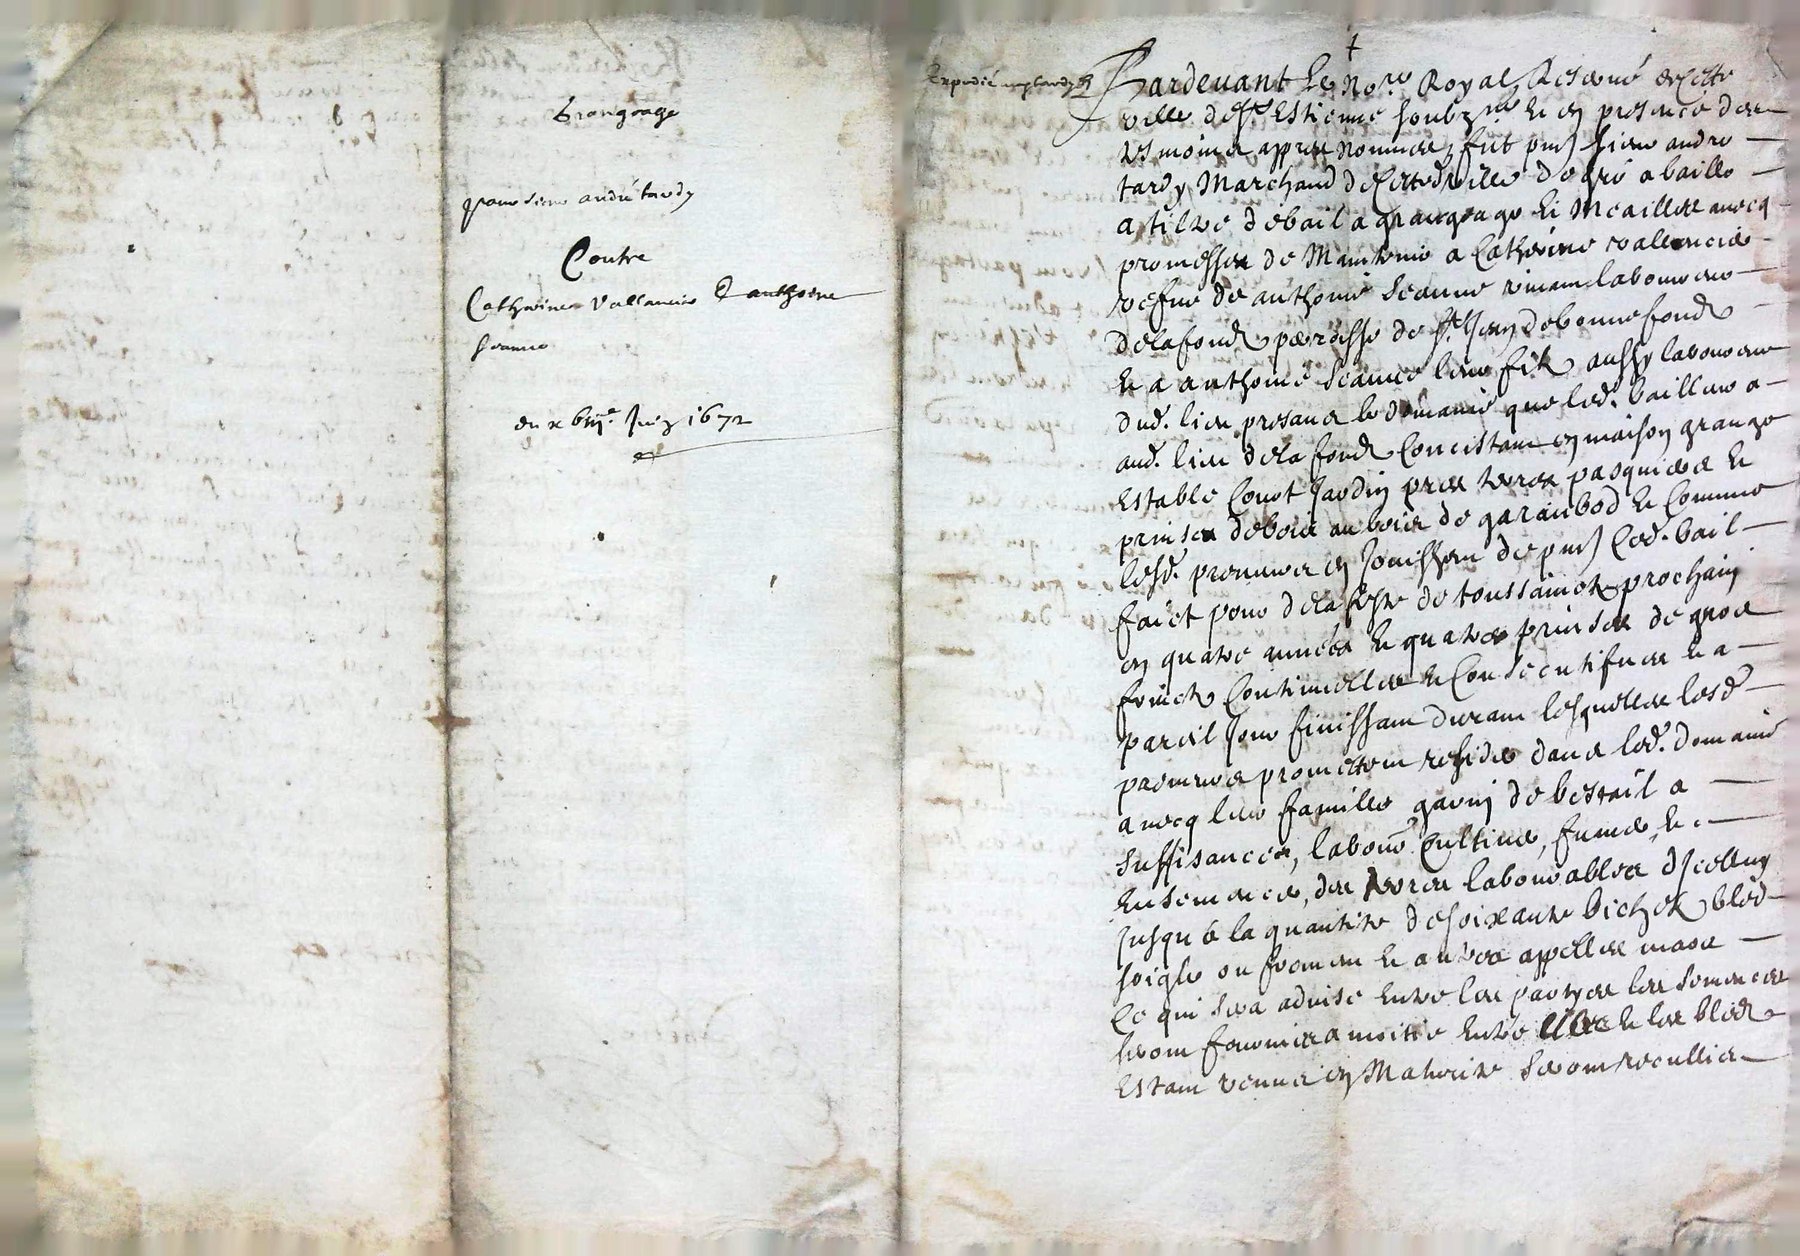 Grangeage
pour sieur andré tardy
Contre
Catherine Vallancier & anthoine
Seanne
du xbiije Juin 1672
Expedié aud tardy
Pardevant le Nore Royal Reservé de cette
ville de St Estienne soubzné & en presence des
tesmoins appres nommes, fut pnt sieur andre
tardy Marchand de cette ville de gré a baillé
a tiltre de bail a grangeage & Meailles avecq
promesses de Maintenir a Catherine vallencier
vefue de anthoine Seanne vivant laboureur
de la fond parroisse de St Jean de bonnefond
& a anthoine Seanne leur filz aussy laboureur
dud. lieu presans le domaine que led. bailleur a
aud. lieu de la fond Concistant en maison grange
Estable Court Jardin pres terres pasquiers &
prinses de bois au bois de garanbod & Comme
lesd. preneurs en Jouissent de pnt Led. bail
faict pour de la feste de toussainctz prochain
en quatre années & quatre prinses de gros
fruictz Continuelles & Consecutifues & a
pareil Jour finissant durant lesquelles lesd
preneurs promettent resider dans led. domaine
avecq leur famille garny de bestail a
suffisances, labourer Cultiver, fumer, &
Ensemencer, des terres labourables d'Icelluy
Jusqu'à la quantite de soixante bichetz bled
seigle ou froment & autres appelles mars
Ce qui sera advisé Entre les partyes les semences
seront fournies a moitié Entre Elles & les bledz
Estant venus en Mahurité seront recullies